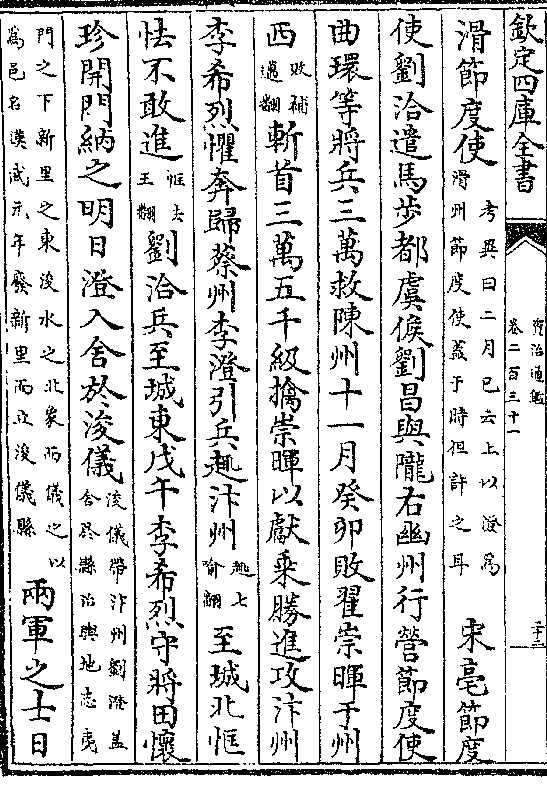 欽定四庫全書
資治通鑑
卷二百三十一
滑節度使考異曰二月已云上以澄為滑州節度使蓋于時但許之耳宋亳節度
使劉洽遣馬步都虞候劉昌與隴右幽州行營節度使
曲環等將兵三萬救陳州十一月癸卯敗翟崇暉于州
西敗補邁翻斬首三萬五千級擒崇暉以獻乘勝進攻汴州
李希烈懼奔歸蔡州李澄引兵趣汴州趣七喻翻至城北恇
怯不敢進恇去王翻劉洽兵至城東戊午李希烈守將田懷
珍開門納之明日澄入舍於浚儀浚儀帶汴州劉澄蓋舍於縣治輿地志夷
門之下新里之東浚水之北象而儀之以為邑名漢武元年廢新里而立浚儀縣兩軍之士日